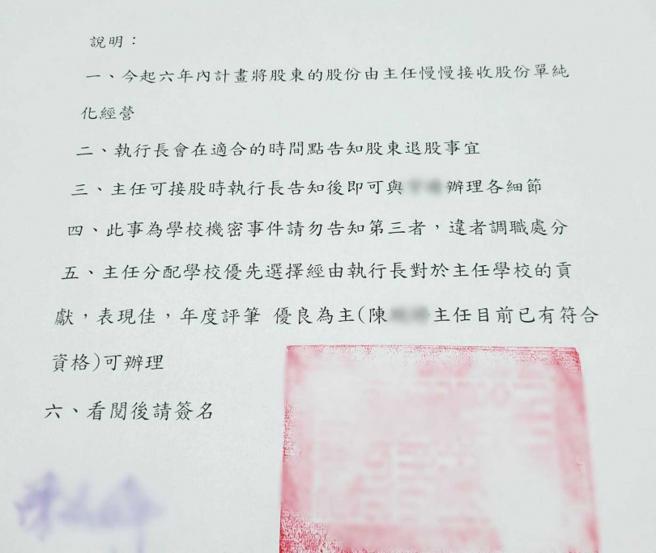 說明：
一、今起六年內計畫將股東的股份由主任慢慢接收股份單純
化經營
二、執行長會在適合的時間點告知股東退股事宜
三、主任可接股時執行長告知後即可與辦理各細節
四、此事為學校機密事件請勿告知第三者，違者調職處分
五、主任分配學校優先選擇經由執行長對於主任學校的貢
獻，表現佳，年度評筆 優良為主(陳主任目前已有符合
資格)可辦理
六、看閱後請簽名